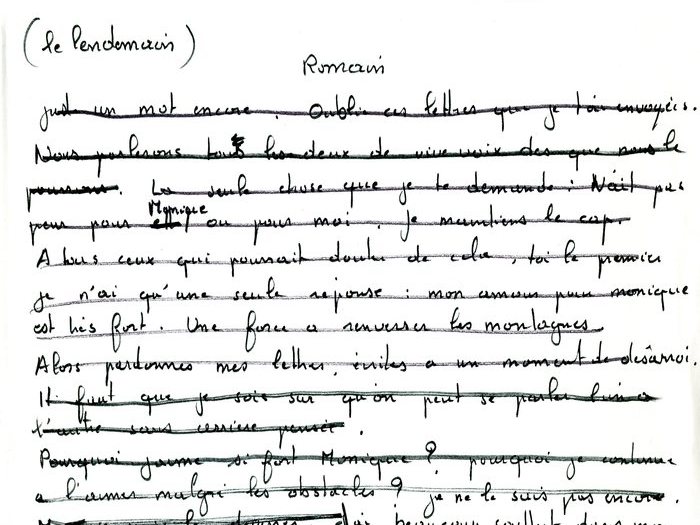 (le lendemain)
Romain
juste un mot encore. Oublie ces lettres que je t'ai envoyées.
Nous parlerons tous les deux de vive voix des que nous le
pourrons. La seule chose que je te demande : N'ait pas
Monique
peur pour ou pour moi. Je maintiens le cap.
A tous ceux qui pourrait douter de cela, toi le premier
je n'ai qu'une seule reponse : mon amour pour monique
est très fort. Une force a renverser les montagnes.
Alors pardonnes mes lettres, écrites a un moment de désarroi.
Il faut que je sois sur qu'on peut se parler l'un a
l'autre sans arriere pensée.
Pourquoi j'aime si fort Monique ? pourquoi je continue
a l'aimer malgré les obstacles ? je ne le sais pas encore.
j'ai beaucoup souffert